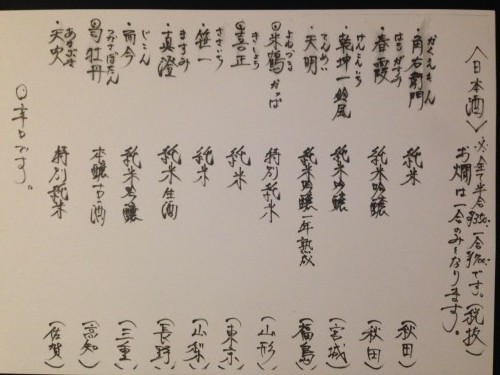 〈日本酒〉 ※全て半合¥350-一合¥700-です。(税抜)
お燗は一合のみとなります。
かくえもん
・角右衛門 純米 (秋田)
はるがすみ
・春霞 純米吟醸 (秋田)
けんこんいち
・乾坤一 純米吟醸 (宮城)
てんめい
・天明 純米吟醸一年熟成 (福島)
よねつる
◎米鶴かっぱ 特別純米 (山形)
きしょう
◎喜正 純米 (東京)
ささいち
・笹一 純米 (山梨)
ますみ
・真澄 純米生酒 (長野)
じこん
・而今 純米吟醸 (三重)
つかさぼたん
◎司牡丹 (高知)
あまぶき
・天吹 特別純米 (佐賀)
◎辛口です。